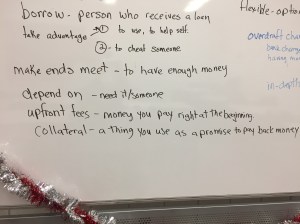 borrow - person who receives a loan
take advantage → ① to use, to help self
② - to cheat someone
make ends meet - to have enough money
depend on - need it/someone
upfront fees - money you pay right at the beginning.
collateral - a thing you use as a promise to pay back money
flexible - option
overdraft cha
bank charge
having
in-depth